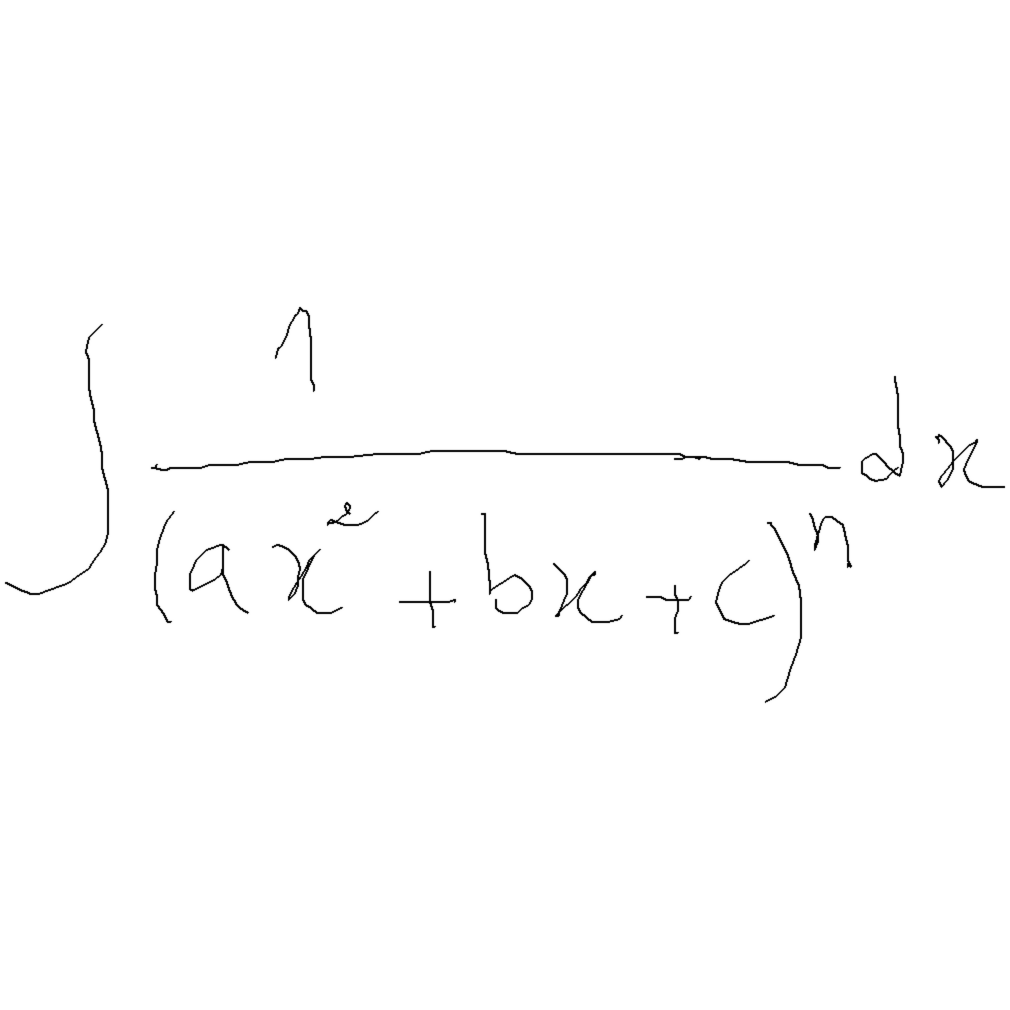 \int \frac{1}{(ax^2+bx+c)^n} dx